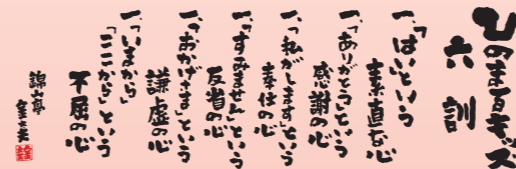 ひのまるキッズ
六訓
一、「はい」という
素直な心
一、「ありがとう」という
感謝の心
一、「私がします」という
奉仕の心
一、「すみません」という
反省の心
一、「おかげさま」という
謙虚の心
一、「いまから」
「ここから」という
不屈の心